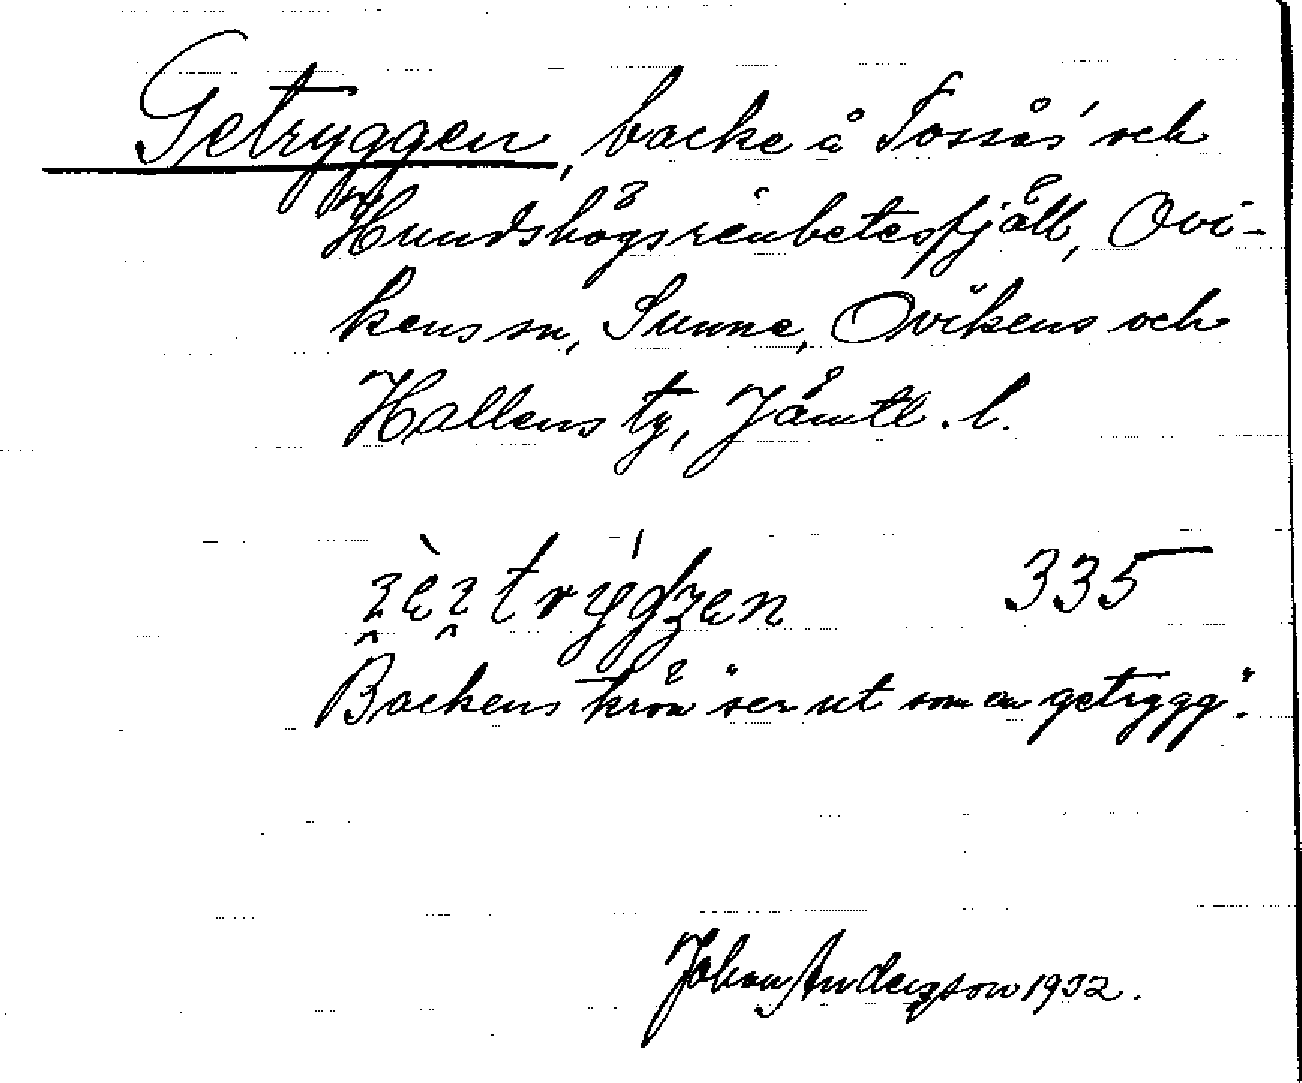 Getryggen, backe å Tossås och
Hundshögs renbetesfjäll, Ovi-
kens sn, Sunne, Ovikens och
Hallens tg, Jämtl. l.
335
Backens krön "ser ut som en getrygg".
Johan Anderzson 1932.